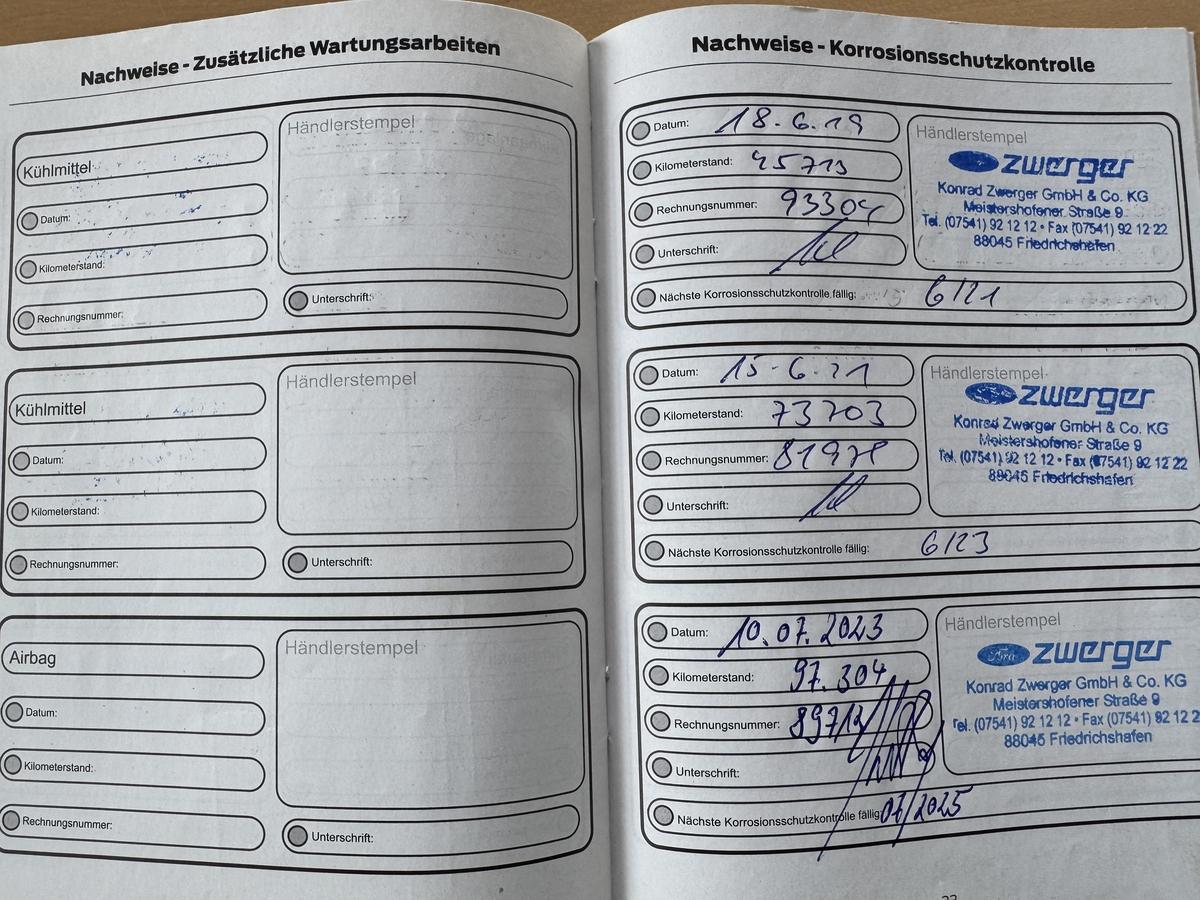 Nachweise - Zusätzliche Wartungsarbeiten
Kühlmittel
Datum:
Kilometerstand:
Rechnungsnummer:
Händlerstempel
Unterschrift:
Kühlmittel
Datum:
Kilometerstand:
Rechnungsnummer:
Händlerstempel
Unterschrift:
Airbag
Datum:
Kilometerstand:
Rechnungsnummer:
Händlerstempel
Unterschrift:
Nachweise - Korrosionsschutzkontrolle
Datum: 18.6.19
Kilometerstand: 45713
Rechnungsnummer:
Unterschrift:
Nächste Korrosionsschutzkontrolle fällig: 6/21
Händlerstempel
zwerger
Konrad Zwerger GmbH & Co. KG
Meistershofener Straße 9
Tel. (07541) 92 12 12 • Fax (07541) 92 12 22
88045 Friedrichshafen
Datum: 15.6.21
Kilometerstand: 73703
Rechnungsnummer: 81978
Unterschrift:
Nächste Korrosionsschutzkontrolle fällig: 6/23
Händlerstempel
zwerger
Konrad Zwerger GmbH & Co. KG
Meistershofener Straße 9
Tel. (07541) 92 12 12 • Fax (07541) 92 12 22
88045 Friedrichshafen
Datum: 10.07.2023
Kilometerstand: 97.304
Rechnungsnummer: 89712
Unterschrift:
Nächste Korrosionsschutzkontrolle fällig: 07/2025
Händlerstempel
Ford zwerger
Konrad Zwerger GmbH & Co. KG
Meistershofener Straße 9
Tel. (07541) 92 12 12 • Fax (07541) 92 12 2
88045 Friedrichshafen